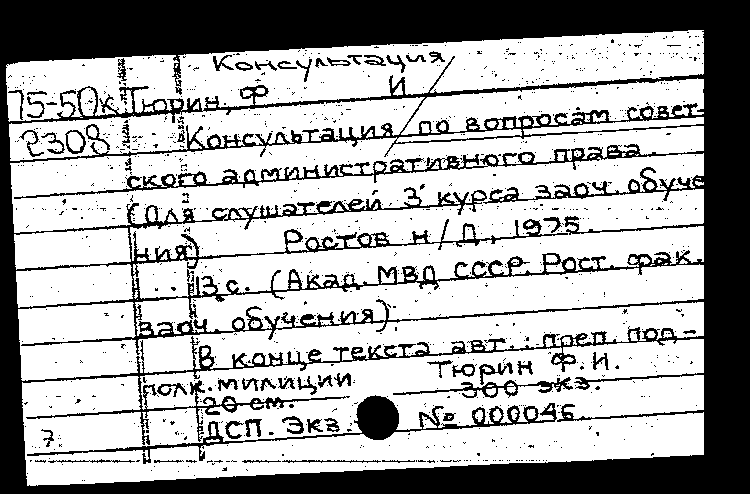 Консультация
75-50к Тюрин, Ф И
2308 Консультация по вопросам совет-
ского административного права.
(Для слушателей 3 курса заоч. обуче
ния) Ростов н/Д., 1975.
13 с. (Акад. МВД СССР. Рост. фак.
заоч. обучения)
В конце текста авт.: преп. под-
полк. милиции Тюрин Ф.И.
20 см. 300 экз.
ДСП. Экз. № 000046.
7